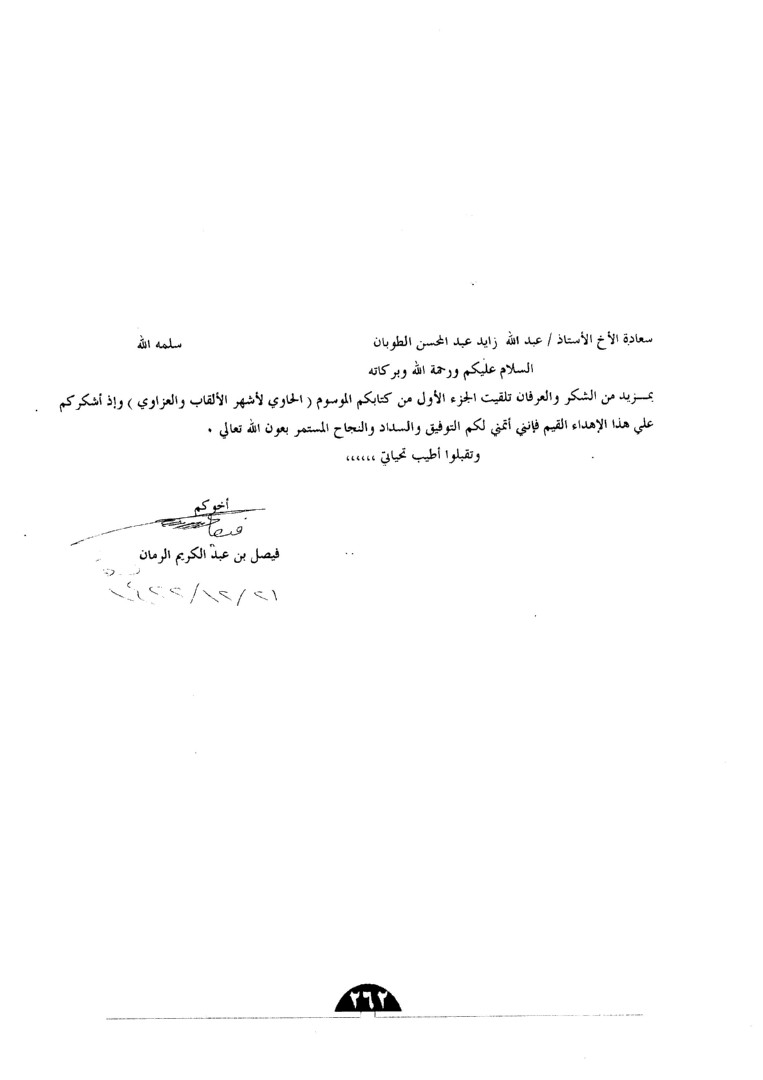 سعادة الأخ الأستاذ / عبد الله زايد عبد المحسن الطوبان سلمه الله
السلام عليكم ورحمة الله وبركاته
بمـزيد من الشكر والعرفان تلقيت الجزء الأول من كتابكم الموسوم ( الحاوي لأشهر الألقاب والعزاوي ) وإذ أشكركم
علي هذا الإهداء القيم فإنني أتمني لكم التوفيق والسداد والنجاح المستمر بعون الله تعالي .
وتقبلوا أطيب تحياتي ،،،،،،
أخوكم
فيصل بن عبد الكريم الرمان
٢٦٢